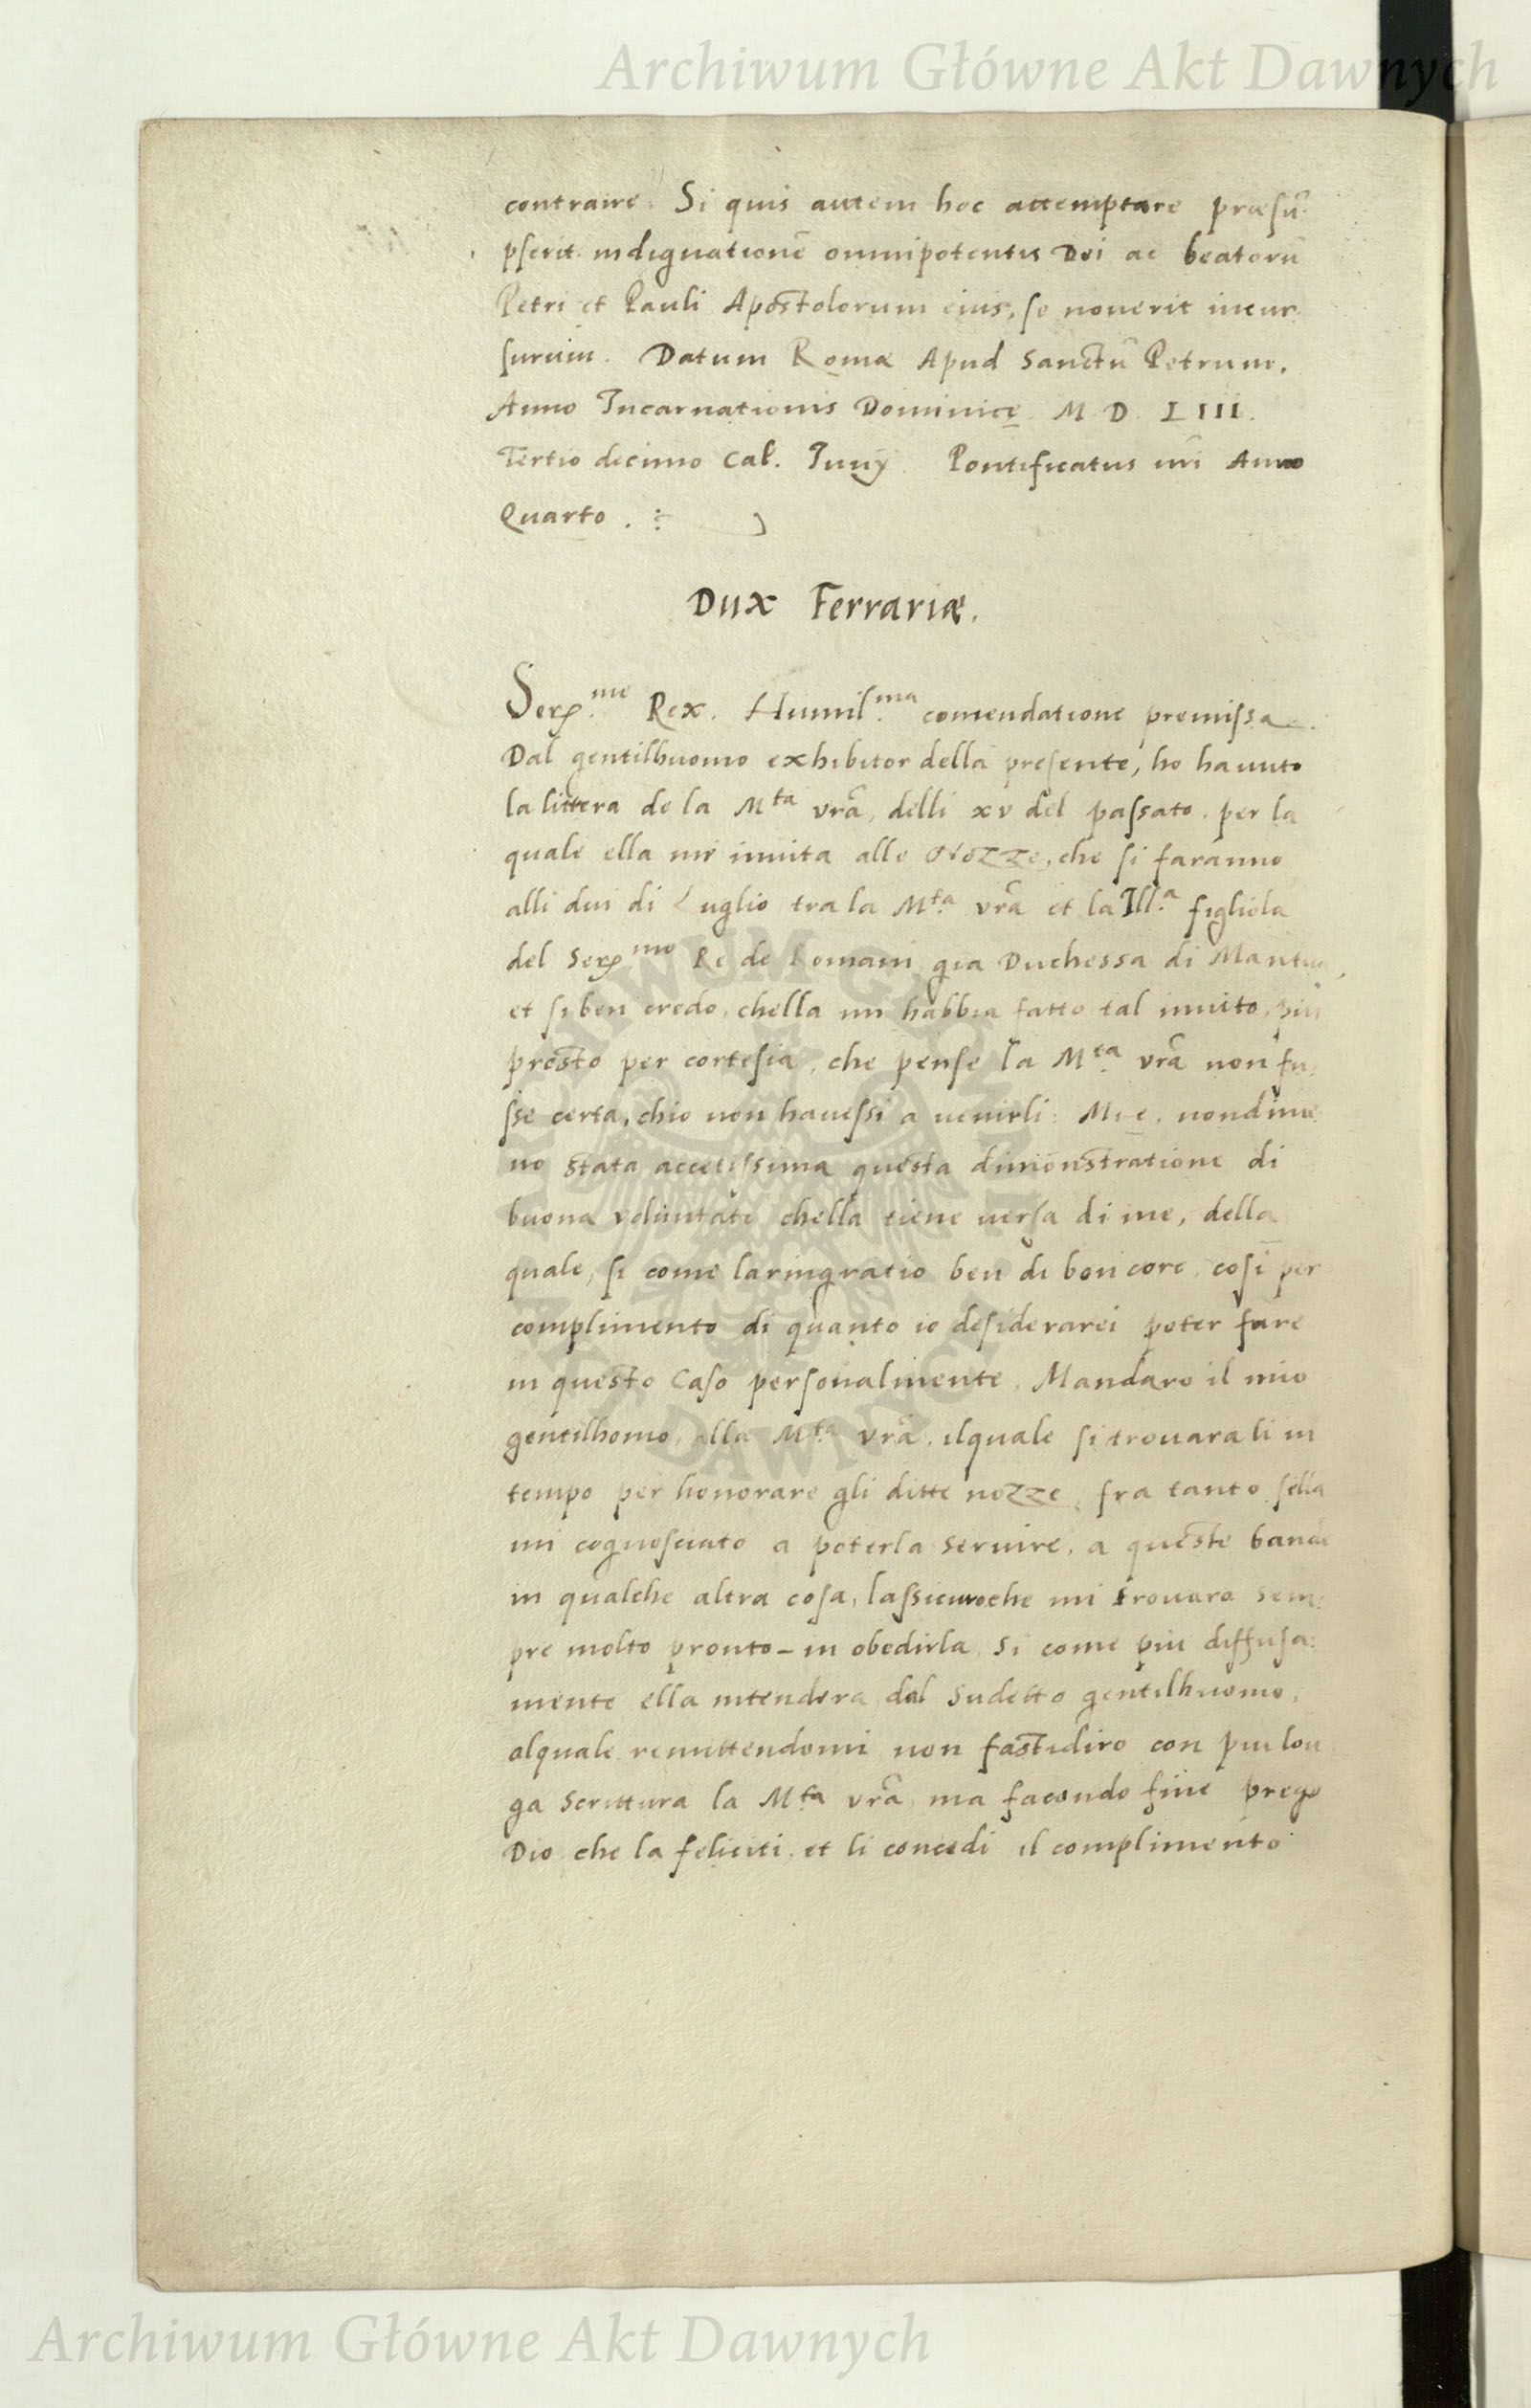 Archiwum Główne Akt Dawnych
contraire. Si quis autem hoc attemptare præsũ:
pserit indignationẽ omnipotentis Dei ac beatorũ
Petri et Pauli Apostolorum eius, se nouerit incur
surum. Datum Romæ Apud Sanctũ Petrum,
Anno Incarnationis Dominicę M D LIII.
Tertio decimo Cal. Junij. Pontificatus nr̃i Anno
Quarto.
Dux Ferrariæ.
Ser.me Rex. Humil.ma comendatione premissa.
Dal gentilhuomo exhibitor della presente, ho hauuto
la littera de la M.ta vrã, delli xv del passato. per la
quale ella me inuita alle Nozze, che si faranno
alli dui di Luglio tra la M.ta vrã et la Ill.a figliola
del Ser.mo Re de Romani gia Duchessa di Mantua,
et si ben credo, chella mi habbia fatto tal inuito, piu
presto per cortesia, che pense la M.ta vrã non fu,
sse certa, chio non hauessi a uenirli: Mi e. nondime
no stata accetissima questa dimonstratione di
buona voluntate chella tiene uersa di me, della
quale, si come la ringratio ben di bon core, cosi per
complimento di quanto io desiderarei poter fare
in questo Caso personalmente. Mandaro il mio
gentilhomo, alla M.ta vrã. ilquale si trouara li in
tempo per honorare gli ditte nozze, fra tanto sella
mi cognosciato a poterla seruire, a queste bande
in qualche altra cosa, lassicuro che mi trouara sem:
pre molto pronto in obedirla. Si come piu diffusa:
mente ella intendera dal Sudetto gentilhuomo,
alquale remittendomi non fastidiro con piu lon
ga Scrittura la M.ta vrã, ma facendo fine prego
Dio che la feliciti. et li concedi il complimento
Archiwum Główne Akt Dawnych